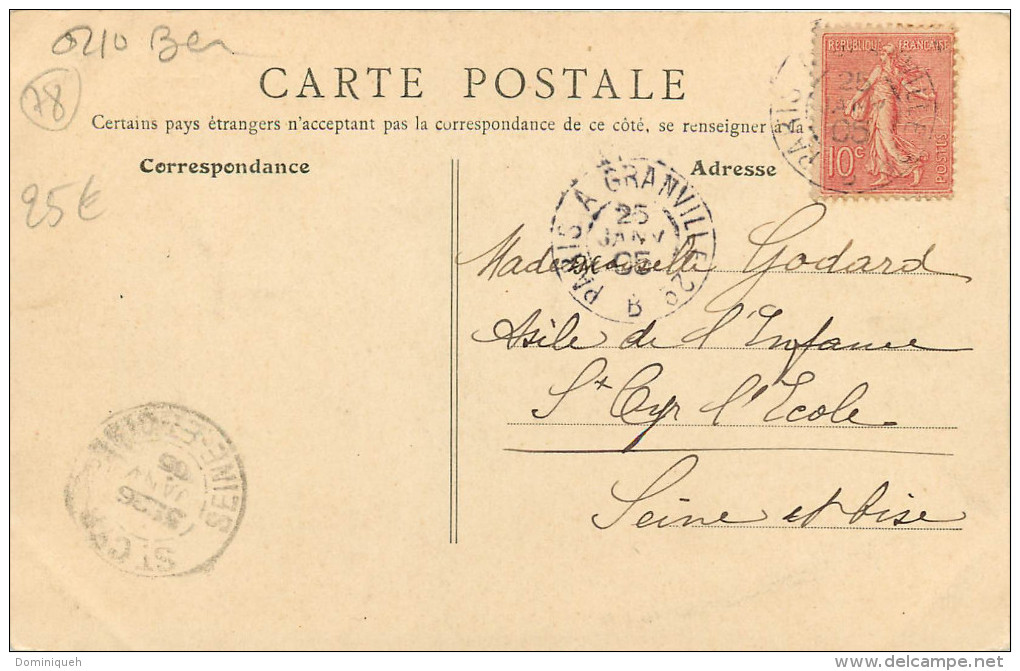 0210 Ben
78
CARTE POSTALE
Certains pays étrangers n'acceptant pas la correspondance de ce côté, se renseigner à la
Correspondance
Adresse
25€
REPUBLIQUE FRANÇAISE
10c
POSTES
PARIS A GRANVILLE
25
JANV
05
PARIS A GRANVILLE 2o
25
JANV
05
B
Mademoiselle Godard
Asile de l'Enfance
St Cyr l'Ecole
Seine et Oise
ST CYR
SEINE-ET-OISE
26
JANV
05
Dominiqueh
delcampe.net